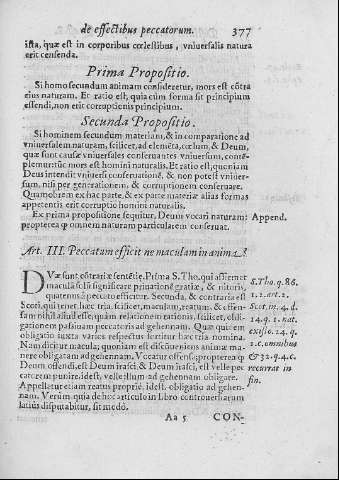 de effectibus peccatorum. 377
ista, quæ est in corporibus cœlestibus, vniuersalis natura
erit censenda.
Prima Propositio.
Si homo secundum animam consideretur, mors est cōtra
eius naturam. Et ratio est, quia cùm forma sit principium
essendi, non erit corruptionis principium.
Secunda Propositio.
Si hominem secundum materiam, & in comparatione ad
vniuersalem naturam, scilicet, ad elemēta, cœlum, & Deum,
quæ sunt causæ vniuersales conseruantes vniuersum, contē-
plemur: tūc mors est homini naturalis. Et ratio est, quoniam
Deus intendit vniuersi conseruationē, & non potest vniuer-
sum, nisi per generationem, & corruptionem conseruare.
Quamobrem ex hac parte, & ex parte materiæ alias formas
appetentis erit corruptio homini naturalis.
Ex prima propositione sequitur, Deum vocari naturam: Append.
propterea ꝙ omnem naturam particularem conseruat.
Art. III. Peccatum efficit ne maculam in anima?
DVæ sunt cōtrariæ sentētiæ. Prima S. Tho. qui asserit
macula solū significare priuationē gratiæ, & nitoris,
quatenus à peccato efficitur. Secunda, & contraria est
Scoti, qui tenet, hæc tria, scilicet, maculam, reatum, & offen-
sam nihil aliud esse, quàm relationem rationis, scilicet, obli-
gationem passiuam peccatoris ad gehennam. Quæ quidem
obligatio iuxta varios respectus sortitur hæc tria nomina.
Nam dicitur macula; quoniam est disconueniens animæ ma-
nere obligatam ad gehennam. Vocatur offensa; propterea ꝙ
Deum offendi, est Deum irasci, & Deum irasci, est velle pec-
catorem punire, idest, velle illum ad gehennam obligare.
Appellatur etiam reatus propriè, idest, obligatio ad gehen-
nam. Verùm quia de hoc articulo in libro controuersiarum
latiùs disputabitur, sit modò.
S. Tho. q. 86.
1. 2. art. 2.
Scot. in. 4. d.
14. q. 1. nat.
2. c. omnibus
& 32. q. 4. c.
recurrat in
fin.
Aa 5 CON-